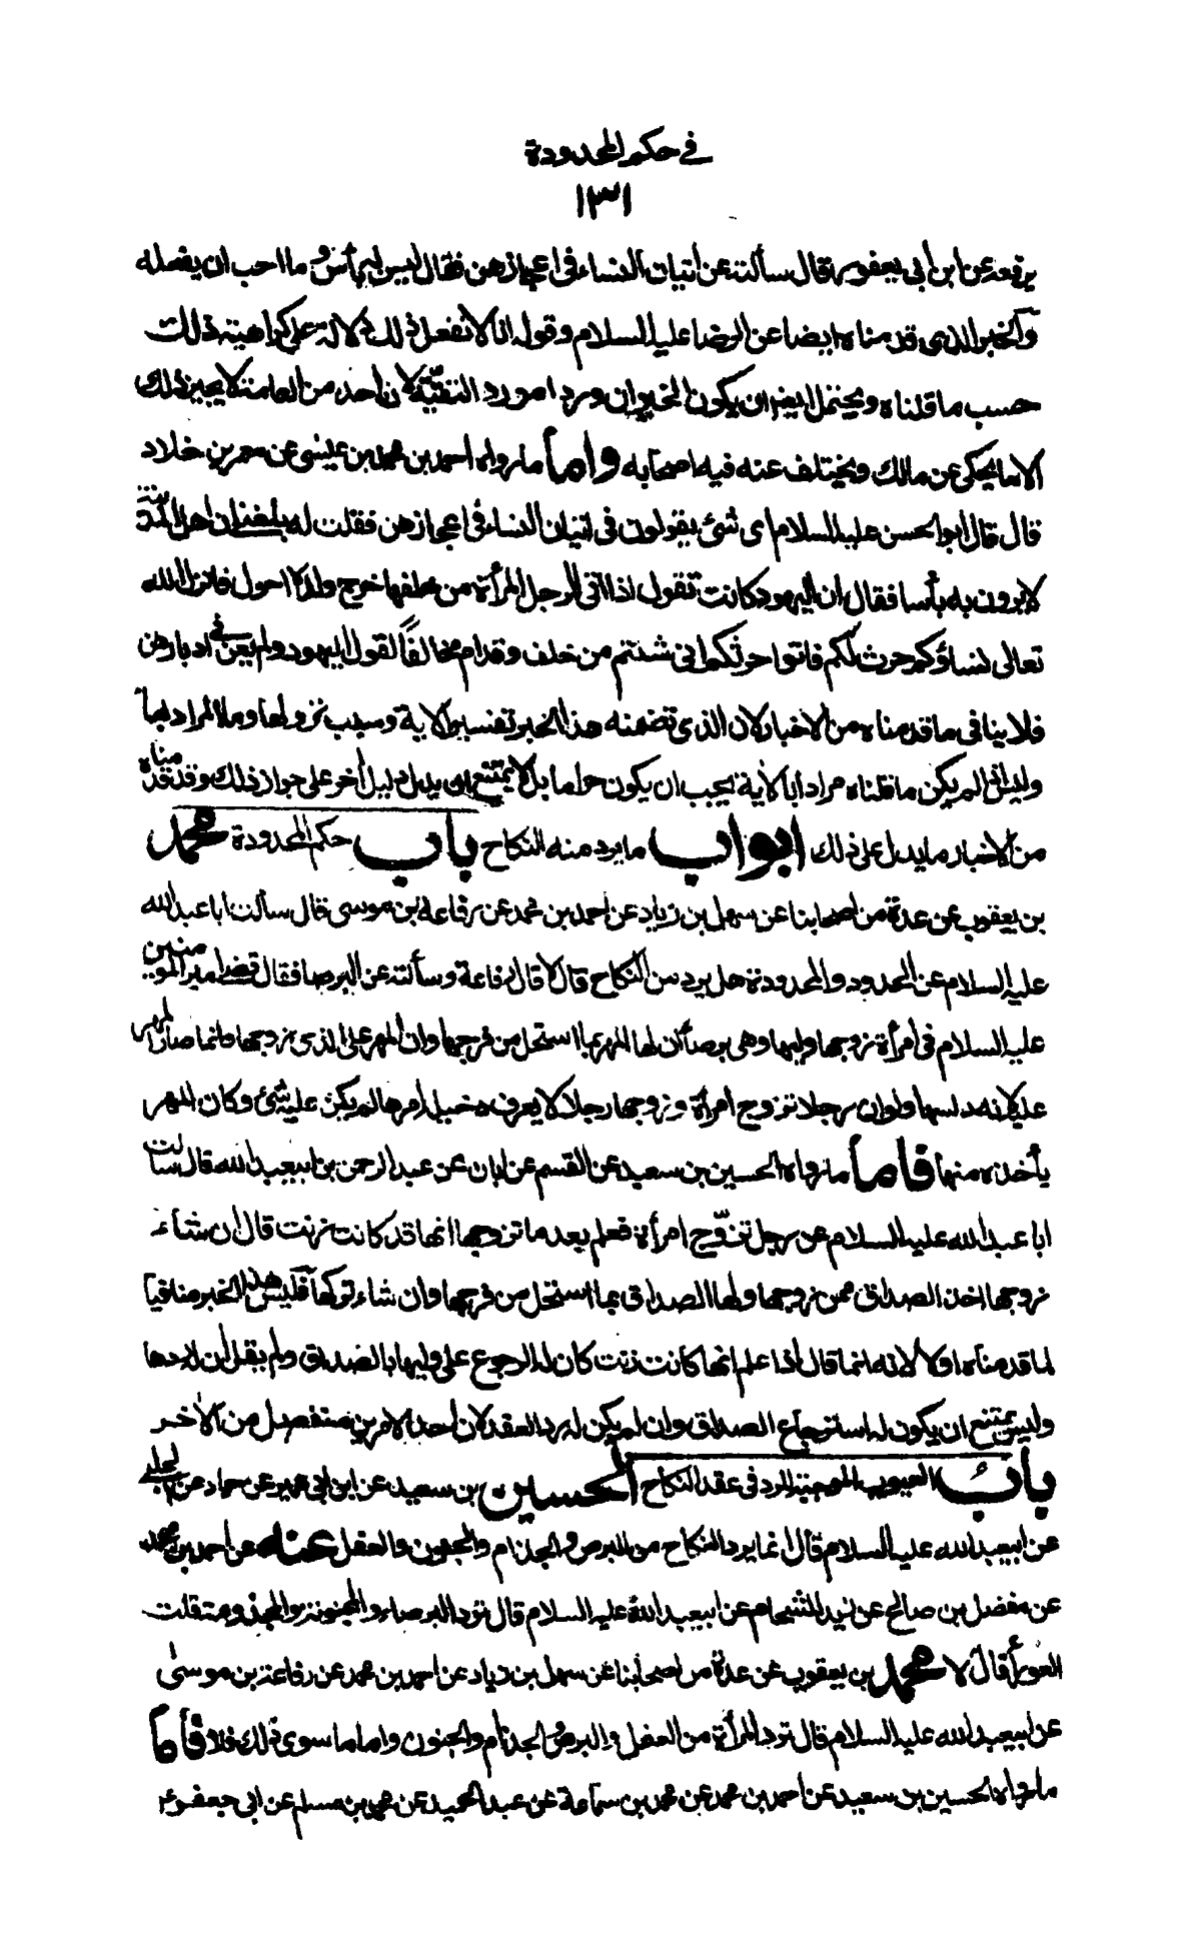 في حكم المحدودة
١٣١
يرفعه عن ابن ابي يعفور قال سألته عن اتيان النساء في اعجازهن فقال ليس به بأس وما احب ان يفعله
والخبر الذي قدمناه ايضا عن الرضا عليه السلام وقوله انا لا نفعل ذلك دلالة على كراهية ذلك
حسب ما قلناه ويحتمل ايضا ان يكون الخبران وردا مورد التقية لان احد من العامة لا يجيز ذلك
الا ما يحكى عن مالك ويختلف عنه فيه اصحابه واما ما رواه احمد بن محمد بن عيسى عن معمر بن خلاد
قال قال ابو الحسن عليه السلام اى شئ يقولون في اتيان النساء في اعجازهن فقلت له بلغني ان اهل المدينة
لا يرون به بأسا فقال ان اليهود كانت تقول اذا اتى الرجل المرأة من خلفها خرج ولده احول فانزل الله
تعالى نساؤكم حرث لكم فاتوا حرثكم انى شئتم من خلف وقدام مخالفاً لقول اليهود ولم يعن في ادبارهن
فلا ينافى ما قدمناه من الاخبار لان الذى تضمنه هذا الخبر تفسير الاية وسبب نزولها وما المراد بها
وليس اذا لم يكن ما قلناه مرادا بالاية يجب ان يكون حراما بل لا يمتنع ان يدل دليل أخر على جواز ذلك وقد قدمناه
من الاخبار ما يدل على ذلك ابواب ما يرد منه النكاح باب حكم المحدودة محمد
بن يعقوب عن عدة من اصحابنا عن سهل بن زياد عن احمد بن محمد عن رفاعة بن موسى قال سألت ابا عبد الله
عليه السلام عن المحدود والمحدودة هل يرد من النكاح قال لا قال رفاعة وسألته عن البرصا فقال قضى امير المؤمنين
عليه السلام في امرأة زوجها وليها وهى برصا أن لها المهر بما استحل من فرجها وان المهر على الذى زوجها وانما صار المهر
عليه لانه دلسها ولو ان رجلا تزوج امرأة وزوجها رجلا لا يعرف دخيل امرها لم يكن عليه شئ وكان المهر
يأخذه منها فاما ما رواه الحسين بن سعيد عن القسم عن ابان عن عبد الرحمن بن ابيعبد الله قال سالت
ابا عبد الله عليه السلام عن رجل تزوّج امرأة فعلم بعد ما تزوجها انها قد كانت زنت قال ان شاء
زوجها اخذ الصداق ممن زوجها ولها الصداق بما استحل من فرجها وان شاء تركها فليس هذا الخبر منافيا
لما قدمناه اولا لانه انما قال اذا علم انها كانت زنت كان له الرجوع على وليها بالصداق ولم يقل ان له ردها
وليس يمتنع ان يكون له استرجاع الصداق وان لم يكن له رد العقد لان احد الامرين منفصل من الاخر
باب العيوب الموجبة للرد في عقد النكاح الحسين بن سعيد عن ابن ابي عمير عن حماد عن الحلبي
عن ابيعبد الله عليه السلام قال انما يرد النكاح من البرص والجذام والجنون والعفل عنه عن احمد بن محمد
عن مفضل بن صالح عن زيد الشحام عن ابيعبد الله عليه السلام قال ترد البرصاء والمجنونة والمجذومة قلت
العورا قال لا محمد بن يعقوب عن عدة من اصحابنا عن سهل بن زياد عن احمد بن محمد عن رفاعة بن موسى
عن ابيعبد الله عليه السلام قال ترد المرأة من العفل والبرص والجذام والجنون واما ما سوى ذلك فلا فأما
ما رواه الحسين بن سعيد عن احمد بن محمد عن محمد بن سماعة عن عبد الحميد عن محمد بن مسلم عن ابي جعفر ع